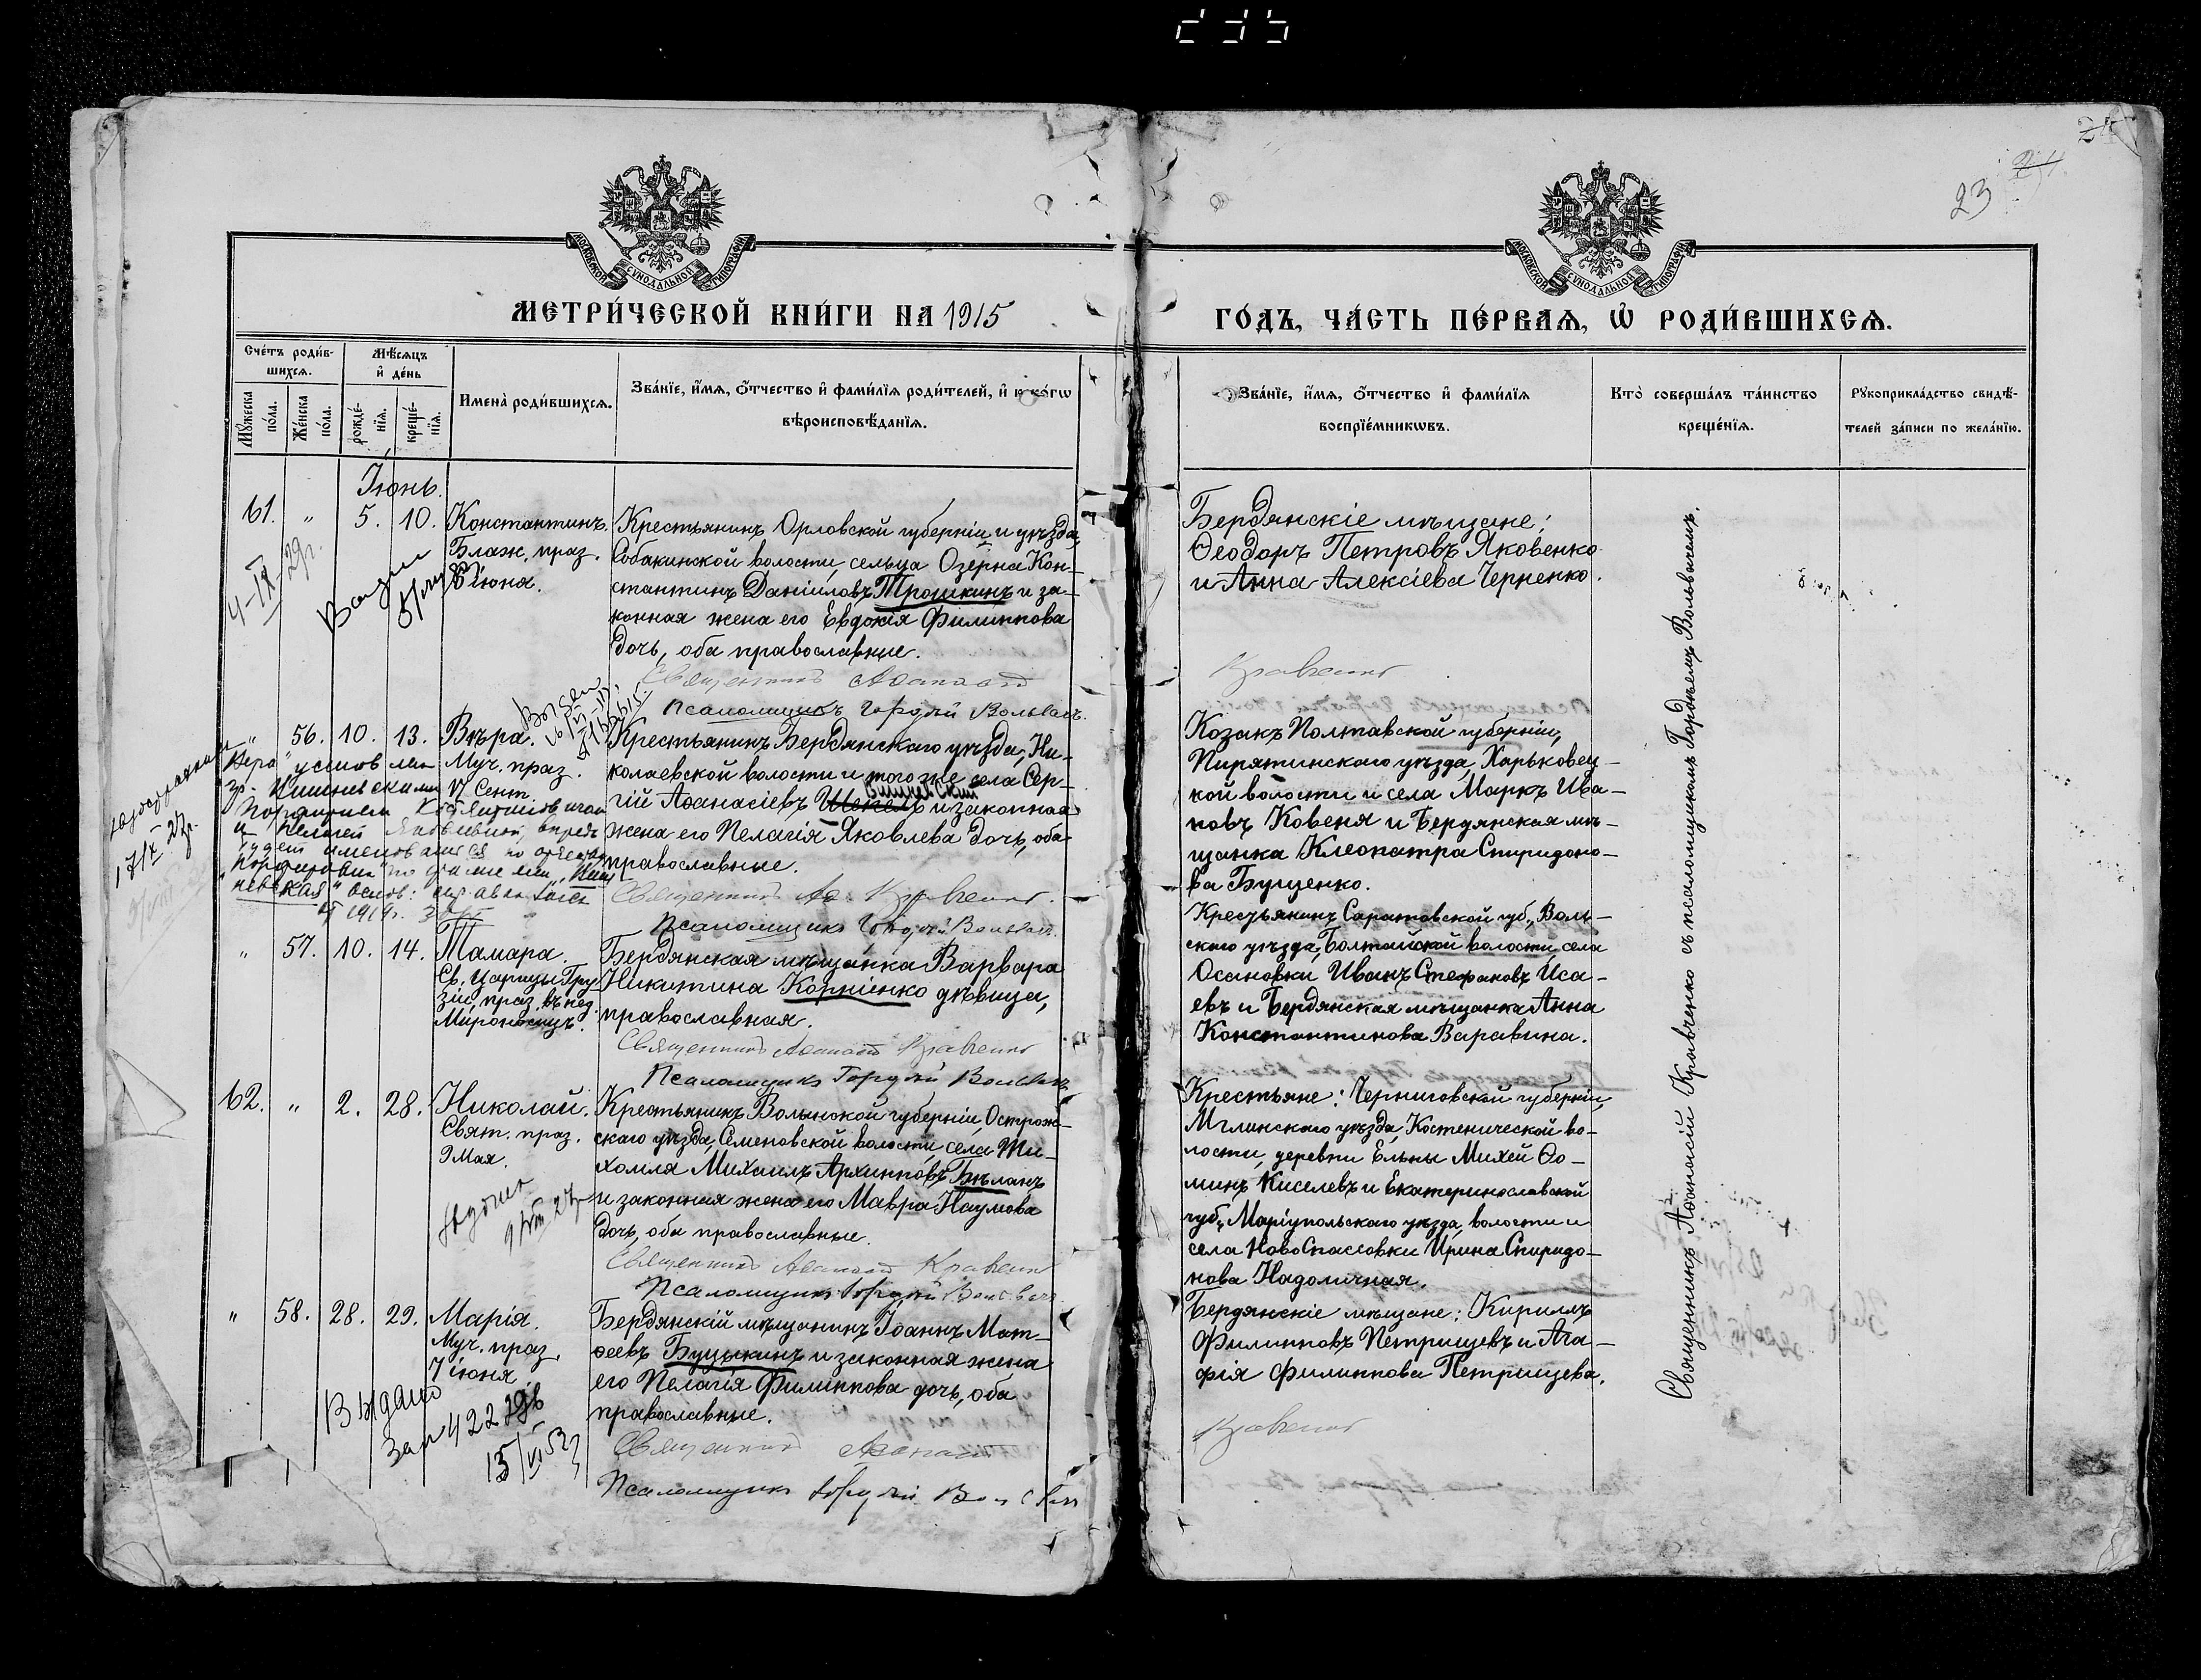 23
МОСКОВСКОЙ СѴНОДАЛЬНОЙ ТИПОГРАФІИ
МОСКОВСКОЙ СѴНОДАЛЬНОЙ ТИПОГРАФІИ
МЕТРИ́ЧЕСКОЙ КНИ́ГИ НА 1915
ГО́ДЪ, ЧА́СТЬ ПЕ́РВАѦ, Ѽ РОДИ́ВШИХСѦ.
Сче́тъ роди́в-
шихсѧ.
Мꙋ́жеска по́ла.
Же́нска по́ла.
Мѣ́сѧцъ
и҆ де́нь
рожде́-
нїѧ.
креще́-
нїѧ.
Имена̀ роди́вшихсѧ.
Зва́нїе, и҆́мѧ, ѻ҆́тчество и҆ фами́лїѧ роди́телей, и҆ како́гѡ
вѣроисповѣ́данїѧ.
Зва́нїе, и҆́мѧ, ѻ҆́тчество и҆ фами́лїѧ
воспрїе́мникѡвъ.
Кто̀ соверша́лъ та́инство
креще́нїѧ.
Рꙋкоприкла́дство свидѣ́-
телей за́писи по жела́нїю.
Іюнь.
61. " 5. 10.
Константинъ.
Блаж. праз.
8 іюня.
4-IX-29г.
Крестьянинъ Орловской губерніи и уѣзда,
Собакинской волости, сельца Озерна Кон-
стантинъ Даніиловъ Трошкинъ и за-
конная жена его Евдокія Филиппова
дочь, оба православные.
Священникъ Аѳанасій
Кравченко
Псаломщикъ Гордѣй Вольвачъ.
Бердянскіе мѣщане:
Ѳеодоръ Петровъ Яковенко
и Анна Алексіева Черненко.
" 56. 10. 13.
Вѣра.
Муч. праз.
17 Сент.
Вера усыновлен
гр. Вишневскими
Порфирием Константиновичем
и Пелагеей Яковлевной, впредь
будет именоваться по отчеству
17/X 27г.
Крестьянинъ Бердянскаго уѣзда, Ни-
колаевской волости и того же села Сер-
гій Аѳанасіевъ Шепель и законная
жена его Пелагія Яковлева дочь, оба
православные.
Священникъ Аѳ. Кравченко.
Псаломщикъ Гордѣй Вольвачъ.
Козакъ Полтавской губерніи,
Пирятинскаго уѣзда, Харьковец-
кой волости и села Маркъ Ива-
новъ Ковеня и Бердянская мѣ-
щанка Клеопатра Спиридоно-
ва Бущенко.
" 57. 10. 14.
Тамара.
Св. Царицы Гру-
зіи, праз. въ нед.
Мироносицъ.
Бердянская мѣщанка Варвара
Никитина Корніенко дѣвица,
православная.
Священникъ Аѳанасій Кравченко
Псаломщикъ Гордѣй Вольвачъ
Крестьянинъ Саратовской губ., Воль-
скаго уѣзда, Болтайской волости, села
Осановки Иванъ Стефановъ Иса-
евъ и Бердянская мѣщанка Анна
Константинова Варавина.
62. " 2. 28.
Николай.
Свят. праз.
9 Мая.
Крестьянинъ Волынской губерніи, Острож-
скаго уѣзда, Семеновской волости, села Ти-
хомля Михаилъ Архипповъ Бѣланъ
и законная жена его Мавра Наумова
дочь, оба православные.
Священникъ Аѳанасій Кравченко
Псаломщикъ Гордѣй Вольвачъ
Крестьяне: Черниговской губерніи,
Мглинскаго уѣзда, Костенической во-
лости, деревни Ельны Михей Ѳо-
минъ Киселевъ и Екатеринославской
губ., Маріупольскаго уѣзда, волости и
села НовоСпассовки Ирина Спиридо-
нова Надоличная.
" 58. 28. 29.
Марія.
Муч. праз.
7 іюня
Выдано
15/VI 53
Бердянскій мѣщанинъ Іоаннъ Мат-
ѳеевъ Буцыкинъ и законная жена
его Пелагія Филиппова дочь, оба
православные.
Священникъ Аѳанасій
Кравченко
Псаломщикъ Гордѣй Вольвачъ
Бердянскіе мѣщане: Кириллъ
Филипповъ Петрищевъ и Ага-
фія Филиппова Петрищева.
Священникъ Аѳанасій Кравченко съ псаломщикомъ Гордѣемъ Вольвачемъ.